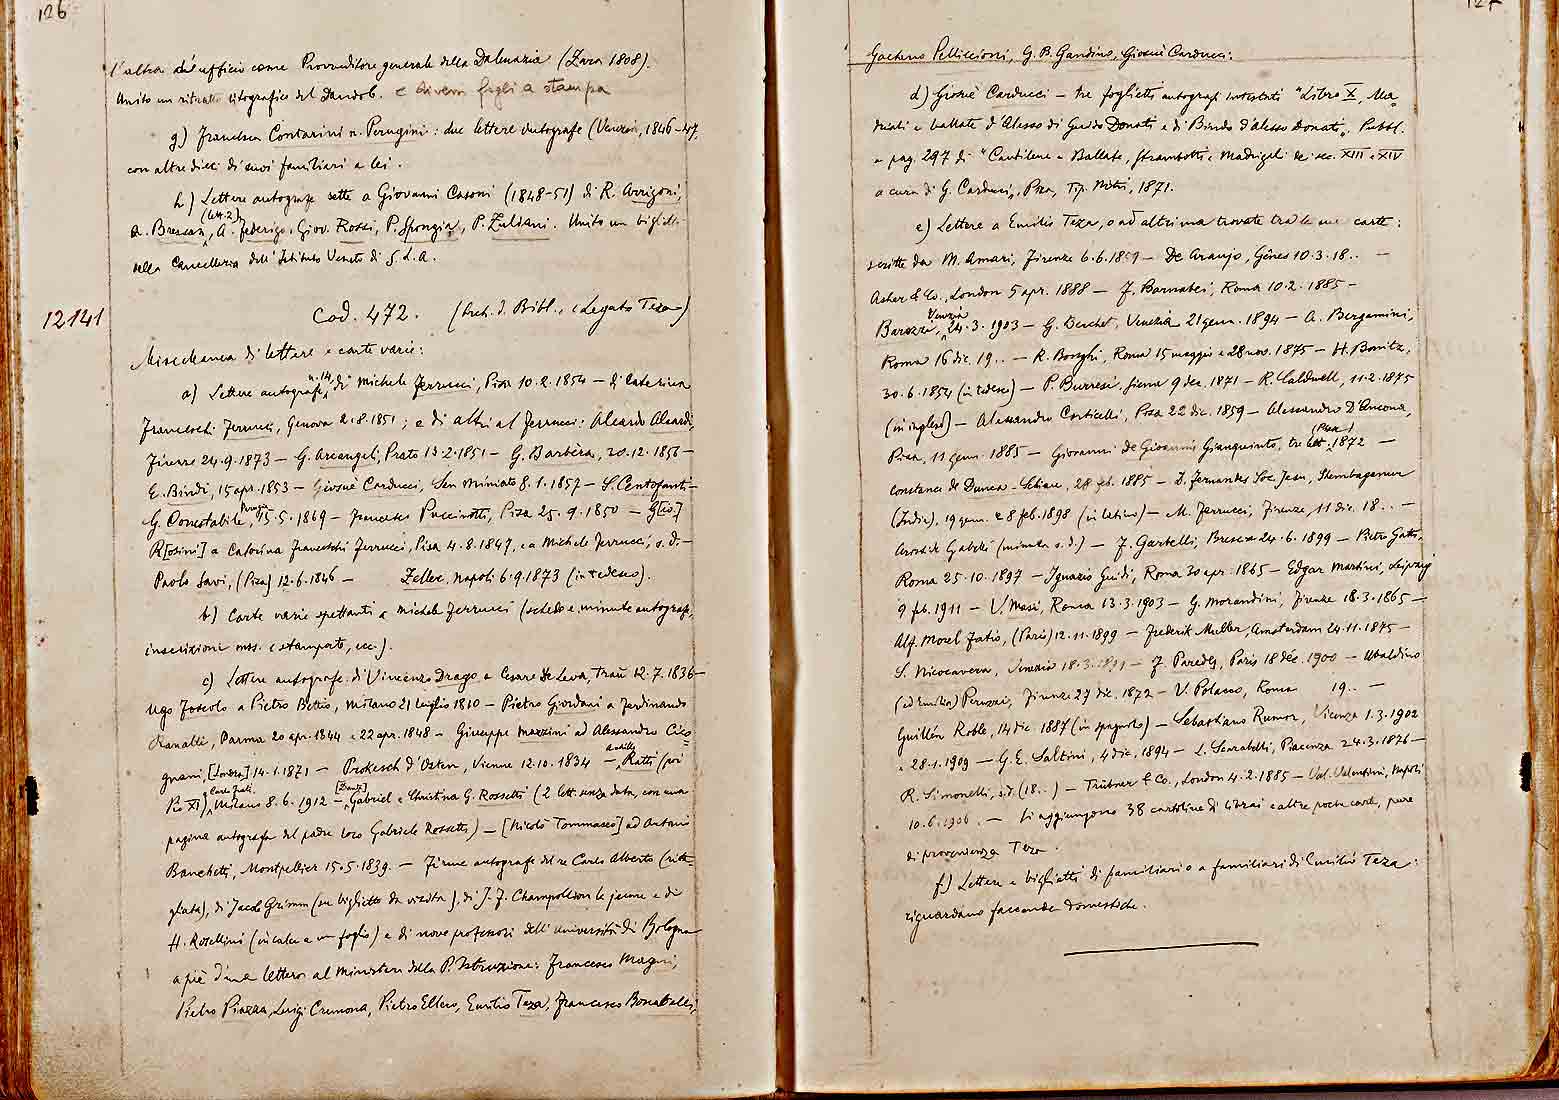 126
l'altra d'ufficio come Provveditore generale della Dalmazia (Zara 1808).
Unito un ritratto litografico del Dandolo. e diversi fogli a stampa
g) Francesca Contarini n. Perugini: due lettere autografe (Venezia, 1846-47,
con altre dieci di suoi familiari a lei.
h) Lettere autografe sette a Giovanni Casoni (1848-51) di R. Arrigoni,
A. Bressan, (lett. 2) A. Federigo, Giov. Rossi, P. Spongia, P. Zuliani. Unito un biglietto
della Cancelleria dell'Istituto Veneto di S. L. A.
12141
Cod. 472. (Arch. d. Bibl., Legato Teza)
Miscellanea di lettere e carte varie:
a) Lettere autografe, n. 14, di Michele Ferrucci, Pisa 10.2.1854 – di Caterina
Franceschi Ferrucci, Genova 2.8.1851; e di altri al Ferrucci: Aleardo Aleardi,
Firenze 24.9.1873 – G. Arcangeli, Prato 12.2.1851 – G. Barbèra, 20.12.1856 –
E. Bindi, 15 apr. 1853 – Giosuè Carducci, San Miniato 8.1.1857 – S. Centofanti –
G. Conestabile, Perugia 15.5.1869 – Francesco Puccinotti, Pisa 25.9.1850 – G[io.]
R[osini] a Caterina Franceschi Ferrucci, Pisa 4.8.1847, e a Michele Ferrucci, s. d. –
Paolo Savi, (Pisa) 12.6.1846 – Zeller, Napoli 6.9.1873 (in tedesco).
b) Carte varie spettanti a Michele Ferrucci (schede e minute autografe,
inscrizioni mss. e stampate, ecc.).
c) Lettere autografe di Vincenzo Drago a Cesare de Leva, Traù 12.7.1836 –
Ugo Foscolo a Pietro Bettio, Milano 21 luglio 1810 – Pietro Giordani a Ferdinando
Ranalli, Parma 20 apr. 1844 e 22 apr. 1848 – Giuseppe Mazzini ad Alessandro Cico=
gnani, [Londra] 14.1.1871 – Prokesch d'Osten, Vienne 12.10.1834 – Achille Ratti (poi
Pio XI), Milano 8.6.1912 – [Dante] Gabriel e Christina G. Rossetti (2 lett. senza data, con una
pagina autografa del padre loro Gabriele Rossetti) – [Nicolò Tommaseo] ad Antonio
Banchetti, Montpellier 15.5.1839. – Firme autografe del re Carlo Alberto (rita=
gliata), di Jacob Grimm (su biglietto da visita), di J. F. Champollion le jeune e di
H. Rosellini (in calce a un foglio) e di nove professori dell'Università di Bologna
a piè d'una lettera al Ministero della P. Istruzione: Francesco Magni,
Pietro Piazza, Luigi Cremona, Pietro Ellero, Emilio Teza, Francesco Bonatelli,
127
Gaetano Pelliccioni, G. B. Gandino, Giosuè Carducci.
d) Giosuè Carducci – tre foglietti autografi intestati "Libro X, Ma=
driali e ballate d'Alesso di Guido Donati e di Bindo d'Alesso Donati„. Pubbl.
a pag. 297 di "Cantilene e Ballate, Strambotti e Madrigali de' sec. XIII e XIV
a cura di G. Carducci„, Pisa, Tip. Nistri, 1871.
e) Lettere a Emilio Teza, o ad altri ma trovate tra le sue carte:
scritte da M. Amari, Firenze 6.6.1859 – De Araujo, Gênes 10.3.18.. –
Asher & Co., London 5 apr. 1888 – F. Barnabei, Roma 10.2.1885 –
Barozzi, Venezia 24.3.1903 – G. Berchet, Venezia 21 genn. 1894 – A. Bergamini,
Roma 16 dic. 19.. – R. Bonghi, Roma 15 maggio e 28 nov. 1875 – H. Bonitz,
30.6.1854 (in tedesco) – P. Burresi, Siena 9 dec. 1871 – R. Caldwell, 11.2.1875
(in inglese) – Alessandro Corticelli, Pisa 22 dic. 1859 – Alessandro D'Ancona,
Pisa, 11 genn. 1885 – Giovanni de Giovanni Gianquinto, tre lett. (Pisa) 1872 –
Constance de Dunca-Schiau, 28 feb. 1885 – D. Fernandes Soc. Jesu, Shembaganur
(India), 19 genn. e 8 feb. 1898 (in latino) – M. Ferrucci, Firenze, 11 dic. 18.. –
Gabelli (minuta s. d.) – F. Garbelli, Brescia 24.6.1899 – Pietro Gatti,
Roma 25.10.1897 – Ignazio Guidi, Roma 30 apr. 1865 – Edgar Martini, Leipzig
9 feb. 1911 – V. Masi, Roma 13.3.1903 – G. Morandini, Firenze 18.3.1865 –
Alf. Morel Fatio, (Paris) 12.11.1899 – Frederik Muller, Amsterdam 24.11.1875 –
S. Nicocavera, Venezia 18.3.1891 – J. Paredes, Paris 18 déc. 1900 – Ubaldino
(ed Emilia) Peruzzi, Firenze 27 dic. 1872 – V. Polacco, Roma 19.. –
Guillén Robles, 14 dic. 1887 (in spagnolo) – Sebastiano Rumor, Vicenza 1.3.1902
e 28.1.1909 – G. E. Saltini, 4 dic. 1894 – L. Scarabelli, Piacenza 24.3.1876 –
R. Simonelli, s. d. (18..) – Trübner & Co., London 4.2.1885 – Val. Valentini, Napoli
10.6.1906. – Si aggiungono 38 cartoline di librai e altre poche carte, pure
di provenienza Teza.
f) Lettere e biglietti di familiari o a familiari di Emilio Teza:
riguardano faccende domestiche.